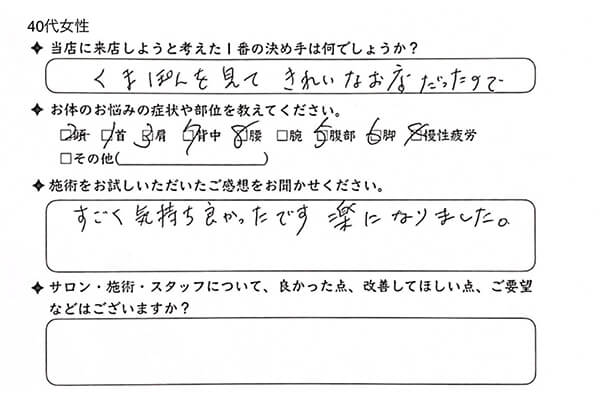 40代女性
✦当店に来店しようと考えた1番の決め手は何でしょうか？
くまぽんを見て きれいなお店だったので
✦お体のお悩みの症状や部位を教えてください。
2頭 1首 3肩 7背中 8腰 □腕 5腹部 6脚 8慢性疲労
□その他( )
✦施術をお試しいただいたご感想をお聞かせください。
すごく気持ち良かったです 楽になりました。
✦サロン・施術・スタッフについて、良かった点、改善してほしい点、ご要望
などはございますか？